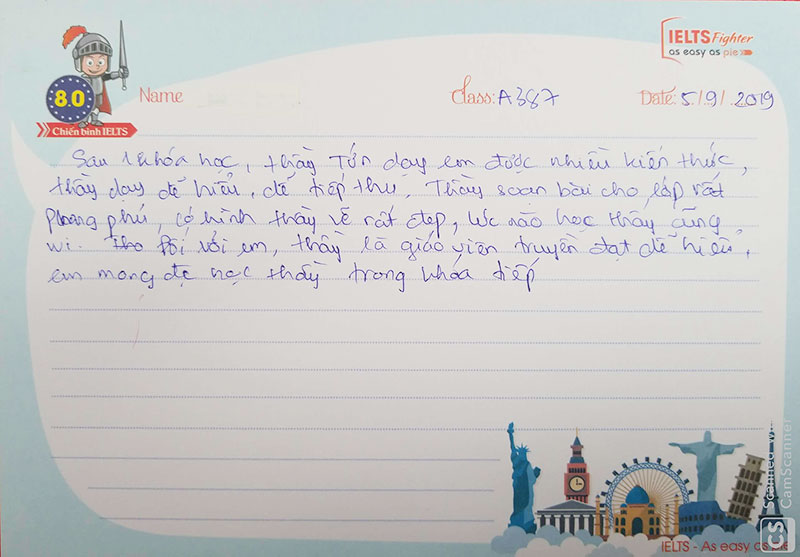 IELTS Fighter
as easy as pie
8.0
Chiến binh IELTS
Name
Class: A387
Date: 5/9/2019
Sau 1 khóa học, thầy Tôn dạy em được nhiều kiến thức,
thầy dạy dễ hiểu, dễ tiếp thu. Thầy soạn bài cho lớp rất
phong phú, có hình thầy vẽ rất đẹp, lúc nào học thầy cũng
vui. Đối với em, thầy là giáo viên truyền đạt dễ hiểu,
em mong đc học thầy trong khóa tiếp
CS
Scanned
CamScanner
IELTS - As easy as pie